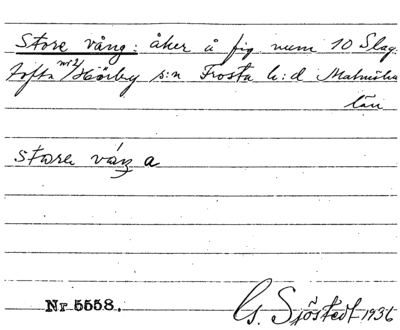 Store vång: åker å fig num 10 Slag-
tofta nr 2 Hörby s:n Frosta h:d Malmöhus
län
Nr 5558.
G. Sjöstedt 1936